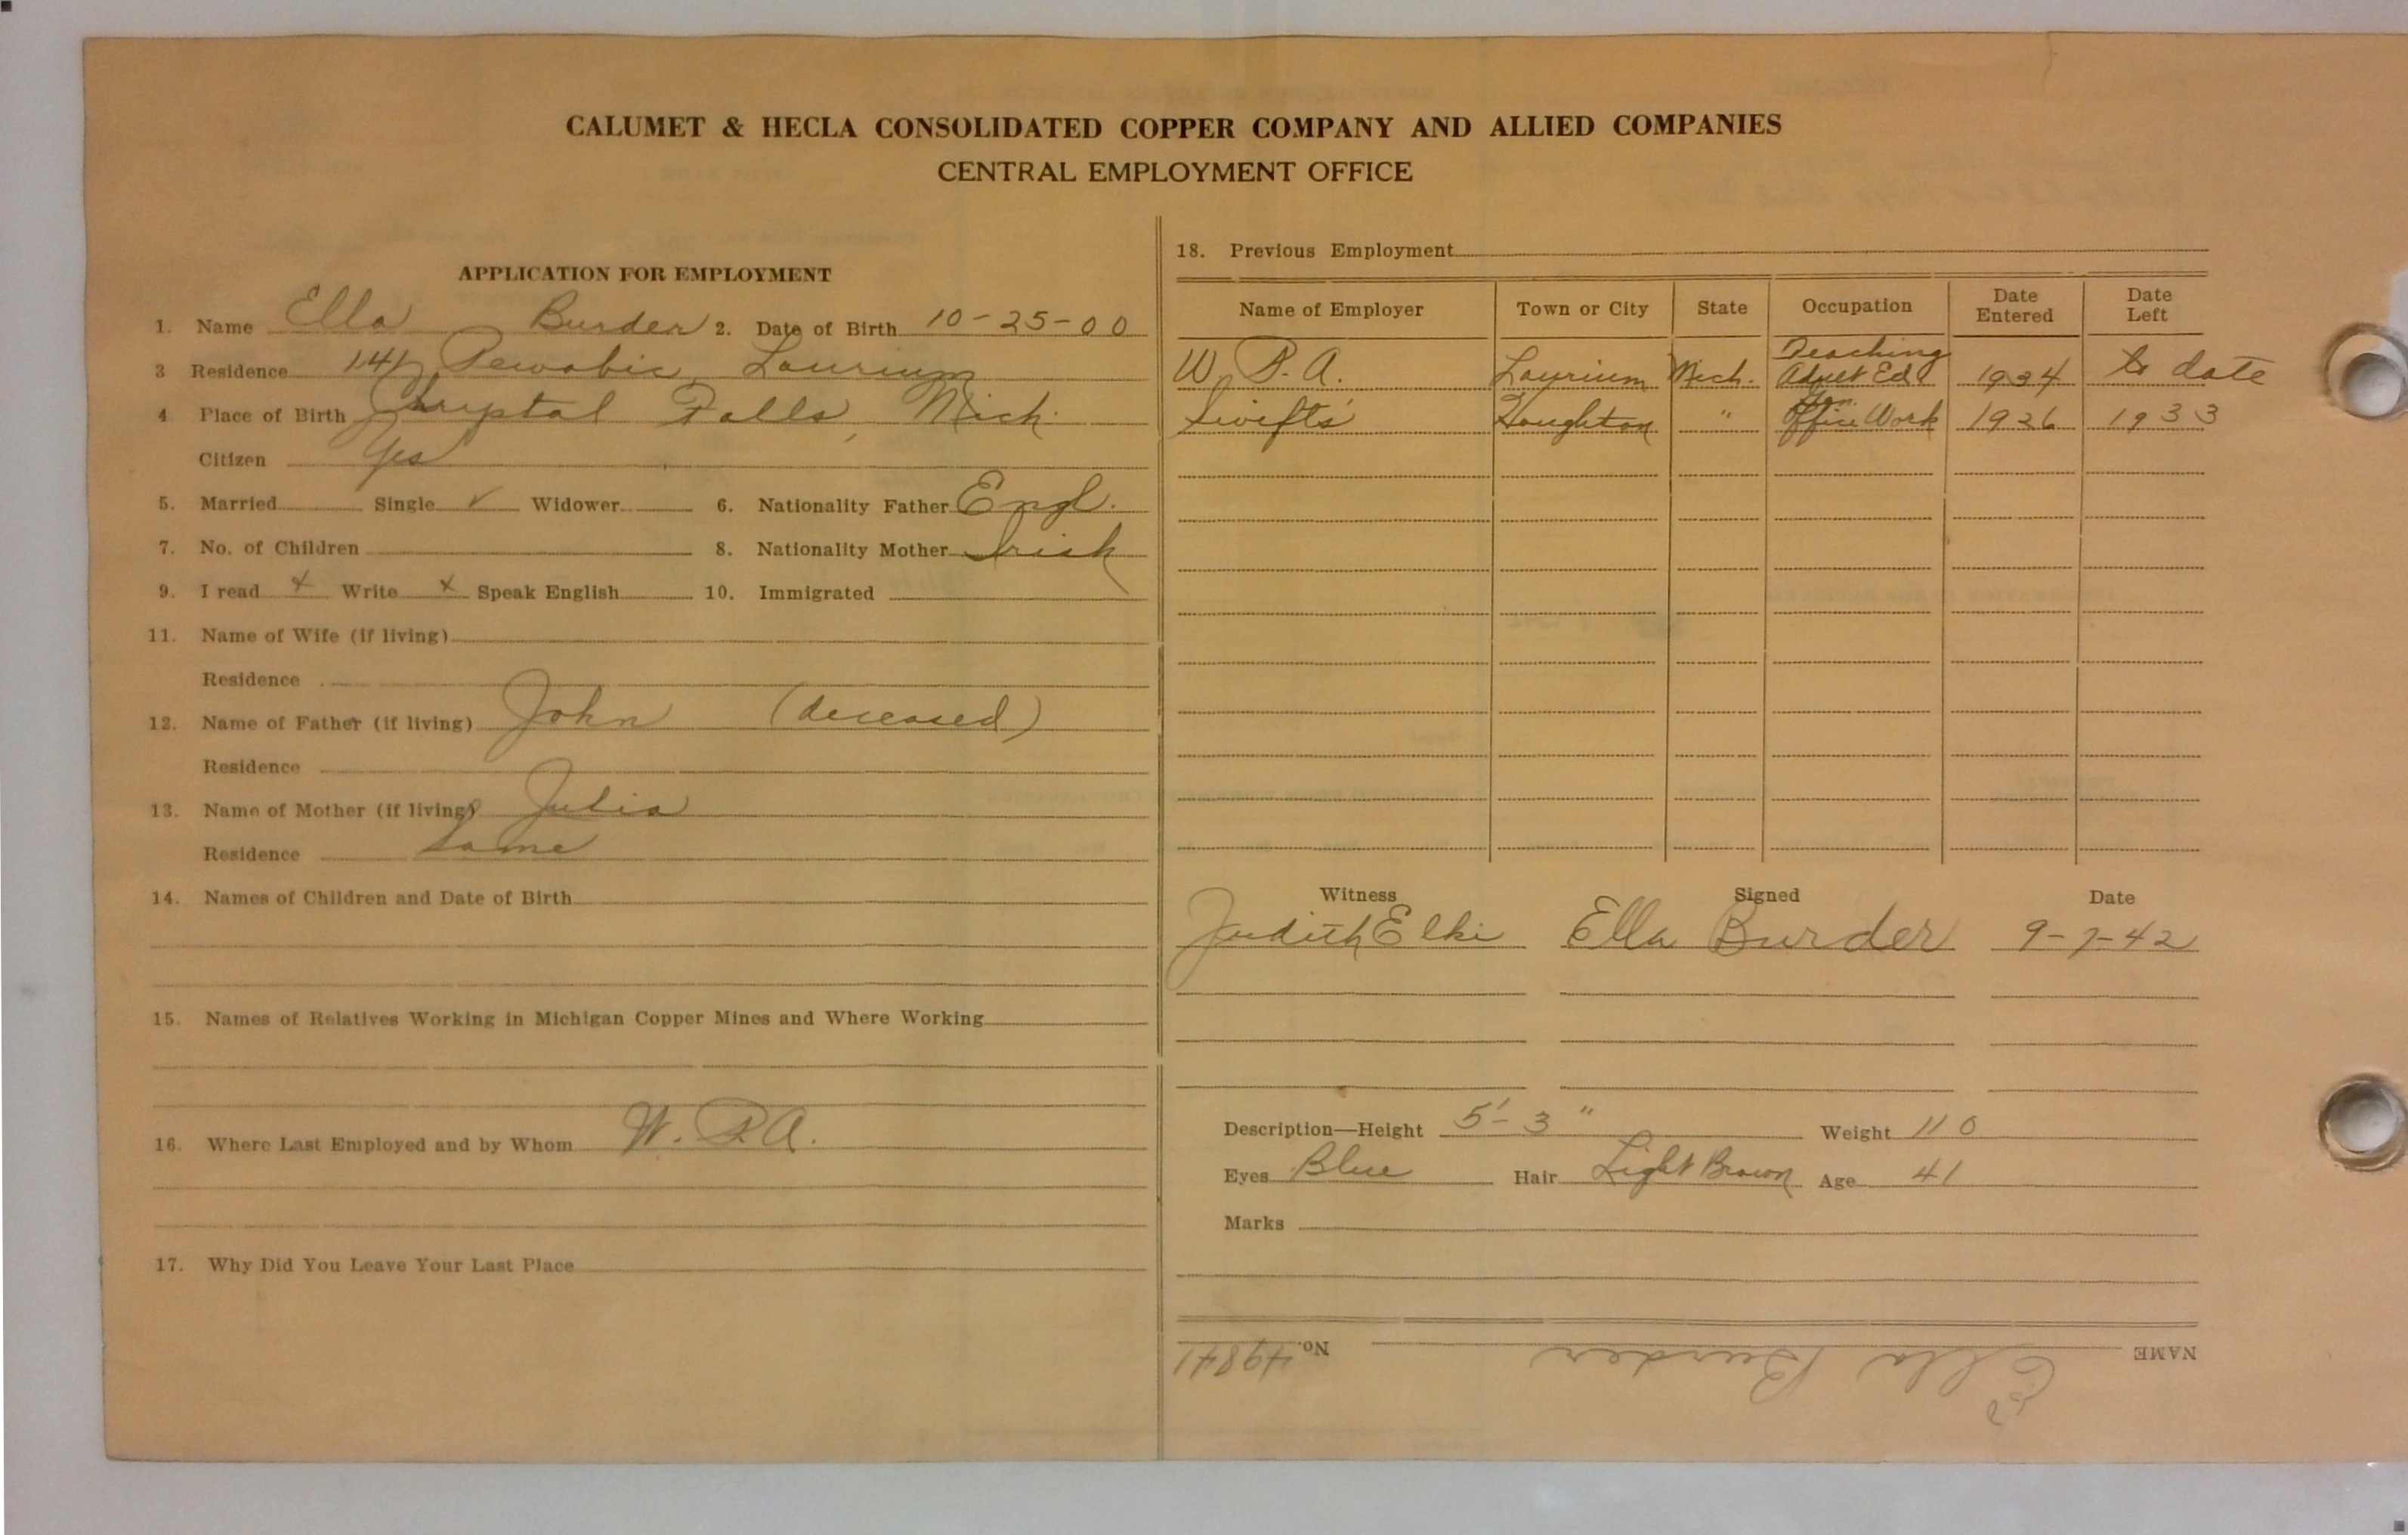 CALUMET & HECLA CONSOLIDATED COPPER COMPANY AND ALLIED COMPANIES
CENTRAL EMPLOYMENT OFFICE
APPLICATION FOR EMPLOYMENT
1. Name Ella Burder 2. Date of Birth 10-25-00
3 Residence Pewabic, Laurium
4. Place of Birth Chrystal Falls, Mich.
Citizen yes
5. Married Single ✓ Widower 6. Nationality Father Engl.
7. No. of Children 8. Nationality Mother Irish
9. I read x Write x Speak English 10. Immigrated
11. Name of Wife (if living)
Residence
12. Name of Father (if living) John (deceased)
Residence
13. Name of Mother (if living) Julia
Residence Same
14. Names of Children and Date of Birth
15. Names of Relatives Working in Michigan Copper Mines and Where Working
16. Where Last Employed and by Whom W. P. A.
17. Why Did You Leave Your Last Place
18. Previous Employment
Name of Employer Town or City State Occupation Date Entered Date Left
W. P. A. Laurium Mich. Teaching Adult Ed. 1934 to date
Swift's Houghton " Gen. Office Work 1926 1933
Witness Signed Date
Judith Elki Ella Burder 9-7-42
Description—Height 5'-3" Weight 110
Eyes Blue Hair Light Brown Age 41
Marks
NAME Ella Burder No. 49841